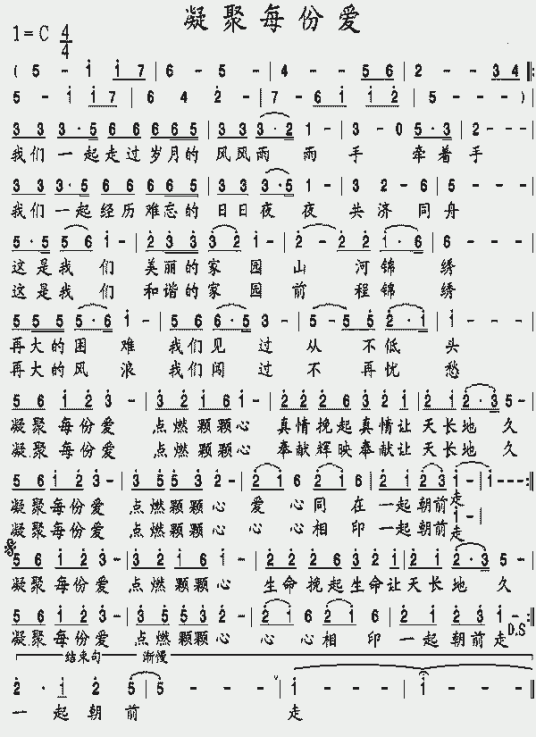 凝聚每份爱
1=C 4/4
( 5 - i i7 | 6 - 5 - | 4 - - 56 | 2 - - 34 ‖:
5 - i i7 | 6 4 2 - | 7 - 6i i2 | 5 - - - )|
3 3 3·5 66 665 | 33 3·2 1 - | 3 - 0 5·3 | 2 - - - |
我们 一起走过岁月的 风风雨 雨 手 牵着手
33 3·5 66 665 | 33 3·5 1 - | 3 2 - 6 | 5 - - - |
我们 一起经历难忘的 日日夜 夜 共济 同舟
5·5 56 i - | 2 33 32 i - | 2 - 22 i·6 | 6 - - - |
这是我 们 美丽的家 园山 河锦 绣
这是我 们 和谐的家 园前 程锦 绣
5 55 5·6 i - | 56 6·5 3 - | 5 - 55 2·i | i - - - |
再大的困 难 我们见 过 从 不低 头
再大的风 浪 我们闯 过 不 再忧 愁
56 i2 3 - | 32 i6 i - | 22 26 32i | 2i 2·3 5 - |
凝聚 每份爱 点燃颗颗心 真情挽起真情让 天长地 久
凝聚 每份爱 点燃颗颗心 奉献辉映奉献让 天长地 久
56 i2 3 - | 35 53 2 - | 2i 6 2i 6 | 2i 23 i - | i - - - :‖
凝聚每份爱 点燃颗颗心 爱 心同 在 一起朝前走
i - |
凝聚每份爱 点燃颗颗心 心 心相 印 一起朝前走
56 i2 3 - | 32 i6 i - | 22 26 32i | 2i 2·3 5 - |
凝聚 每份爱 点燃颗颗心 生命 挽起生命让天长地 久
56 i2 3 - | 35 53 2 - | 2i 6 2i 6 | 2i 23 i - :‖
凝聚每份爱 点燃颗颗心 心 心相 印 一起朝前走 D.S
结束句 渐慢
2 · i 2 5 | 5 - - - | i - - - | i - - - ‖
一 起朝 前 走